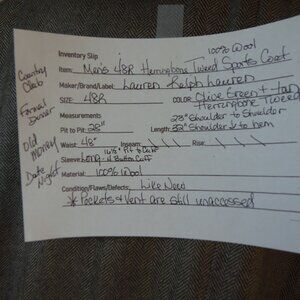 100% Wool
Inventory Slip
Item: Men's 48R Herringbone Tweed Sports Coat
Maker/Brand/Label: Lauren Ralph Lauren
SIZE: 48R COLOR: Olive Green + tan
Herringbone Tweed
Measurements 23" Shoulder to Shoulder
Pit to Pit: 25" Length: 32" Shoulder to hem
Waist: 48" Inseam: Rise:
16½" Pit to Cuff
Sleeve: Long - 4 Button Cuff
Material: 100% Wool
Condition/Flaws/Defects: Like New
* Pockets + Vent are still unaccossed
Country
Club
Formal
Dinner
Old
Money
Date
Night